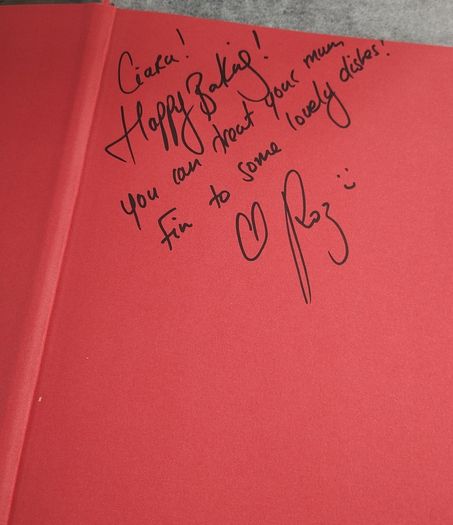 Ciara!
Happy Baking!
you can treat your mum,
Fin to some lovely dishes!
♡ Roz :)